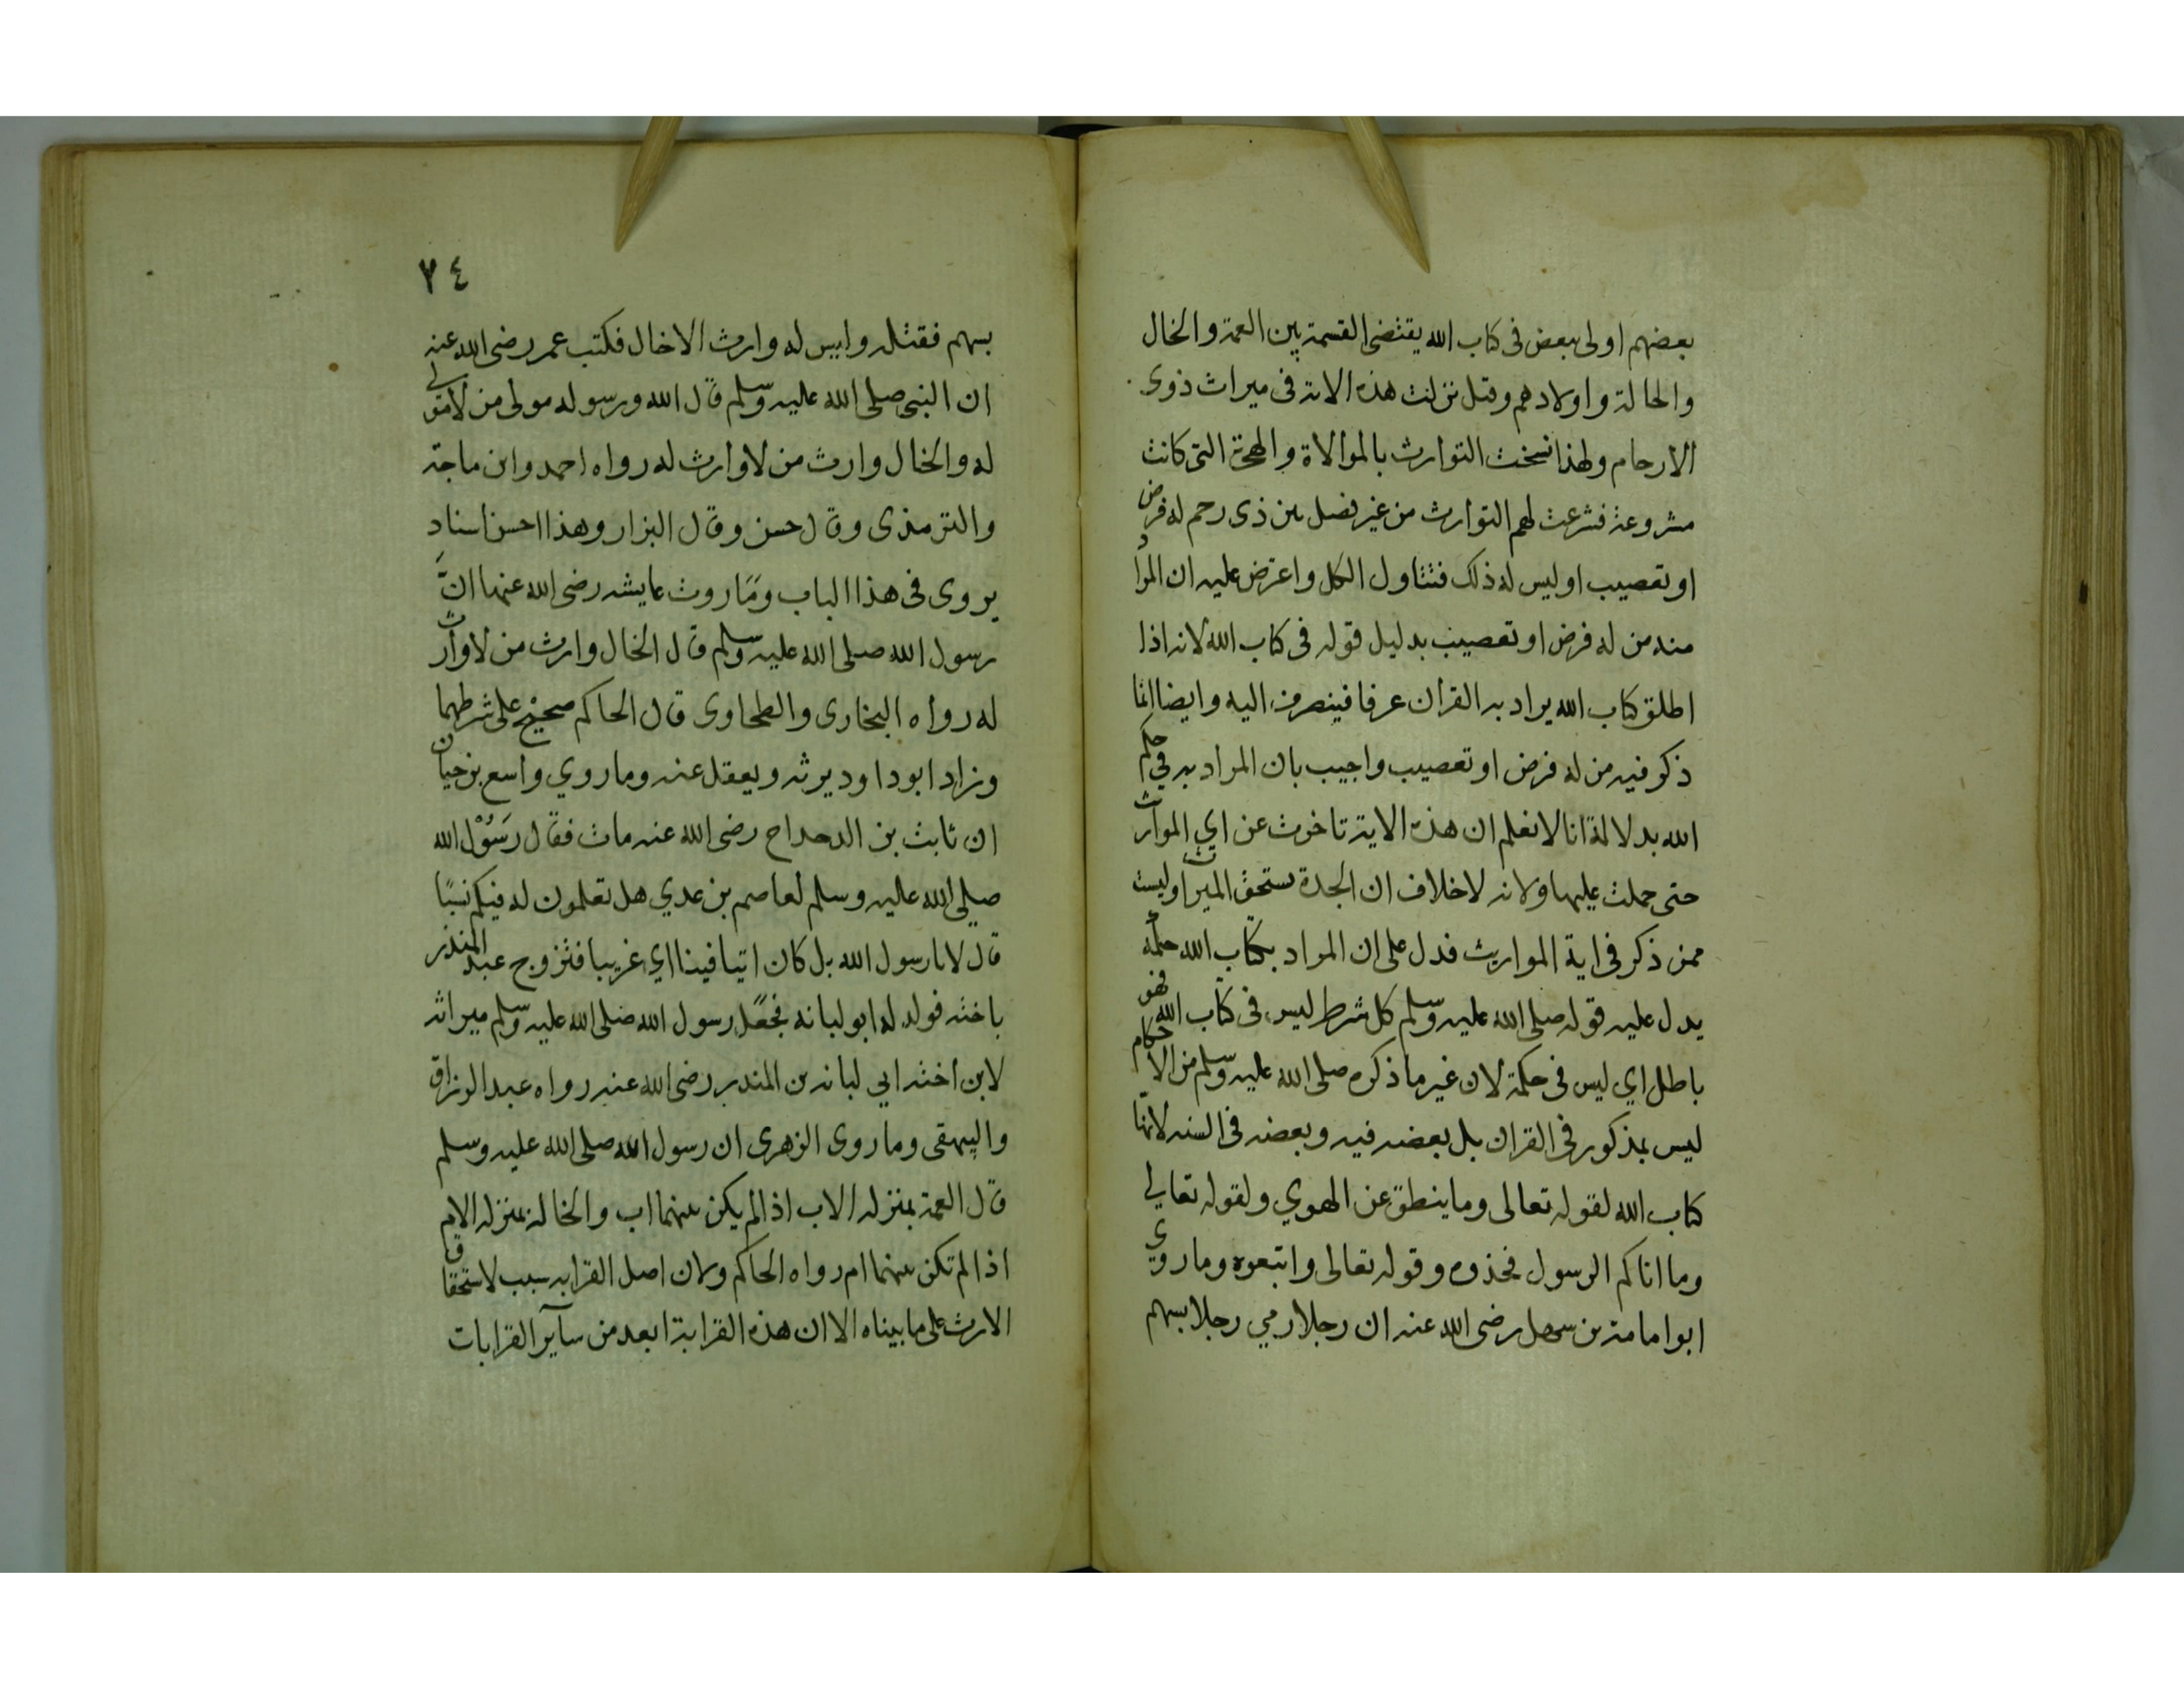 بعضهم اولى ببعض فى كتاب الله يقتضى القسمة بين العمة والخال
والخالة واولادهم وقيل نزلت هذه الاية فى ميراث ذوى
الارحام ولهذا نسخت التوارث بالموالاة والهجرة التى كانت
مشروعة فشرعت لهم التوارث من غير فصل بين ذى رحم له فرض
او تعصيب او ليس له ذلك فتتناول الكل واعترض عليه ان المراد
منه من له فرض او تعصيب بدليل قوله فى كتاب الله لانه اذا
اطلق كتاب الله يراد به القران عرفا فينصرف اليه وايضا انما
ذكر فيه من له فرض او تعصيب واجيب بان المراد به في حكم
الله بدلالة انا لا نعلم ان هذه الاية تاخرت عن اي الموارث
حتى حملت عليها ولانه لا خلاف ان الجدة تستحق الميراث وليست
ممن ذكر فى اية المواريث فدل على ان المراد بكتاب الله حكمه
يدل عليه قوله صلى الله عليه وسلم كل شرط ليس فى كتاب الله فهو
باطل اي ليس فى حكمة لان غير ما ذكره صلى الله عليه وسلم من الاحكام
ليس بمذكور فى القران بل بعضه فيه وبعضه فى السنه لانها
كتاب الله لقوله تعالى وما ينطق عن الهوي ولقوله تعالي
وما اتاكم الرسول فخذوه وقوله تعالى واتبعوه وما روي
ابو امامة بن سهل رضى الله عنه ان رجلا رمي رجلا بسهم
٧٤
بسهم فقتله وليس له وارث الا خال فكتب عمر رضى الله عنه
ان النبى صلى الله عليه وسلم قال الله ورسوله مولى من لا مولي
له والخال وارث من لا وارث له رواه احمد وابن ماجة
والترمذى وقال حسن وقال البزار وهذا احسن اسناد
يروى فى هذا الباب وما روت عايشه رضى الله عنها ان
رسول الله صلى الله عليه وسلم قال الخال وارث من لا وارث
له رواه البخارى والطحاوى قال الحاكم صحيح على شرطهما
وزاد ابو داود يرثه ويعقل عنه وما روي واسع بن حبان
ان ثابت بن الدحداح رضى الله عنه مات فقال رسول الله
صلي الله عليه وسلم لعاصم بن عدي هل تعلمون له فيكم نسبا
قال لا يا رسول الله بل كان اتيا فينا اي غريبا فتزوج عبد المنذر
باخته فولد له ابو لبانه فجعل رسول الله صلى الله عليه وسلم ميراثه
لابن اخته ابي لبانه بن المنذر رضى الله عنه رواه عبد الرزاق
والبيهقى وما روى الزهرى ان رسول الله صلى الله عليه وسلم
قال العمة بمنزله الاب اذا لم يكن بينهما اب والخالة بمنزله الام
اذا لم تكن بينهما ام رواه الحاكم ولان اصل القرابه سبب لاستحقاق
الارث على ما بيناه الا ان هذه القرابة ابعد من سآير القرابات